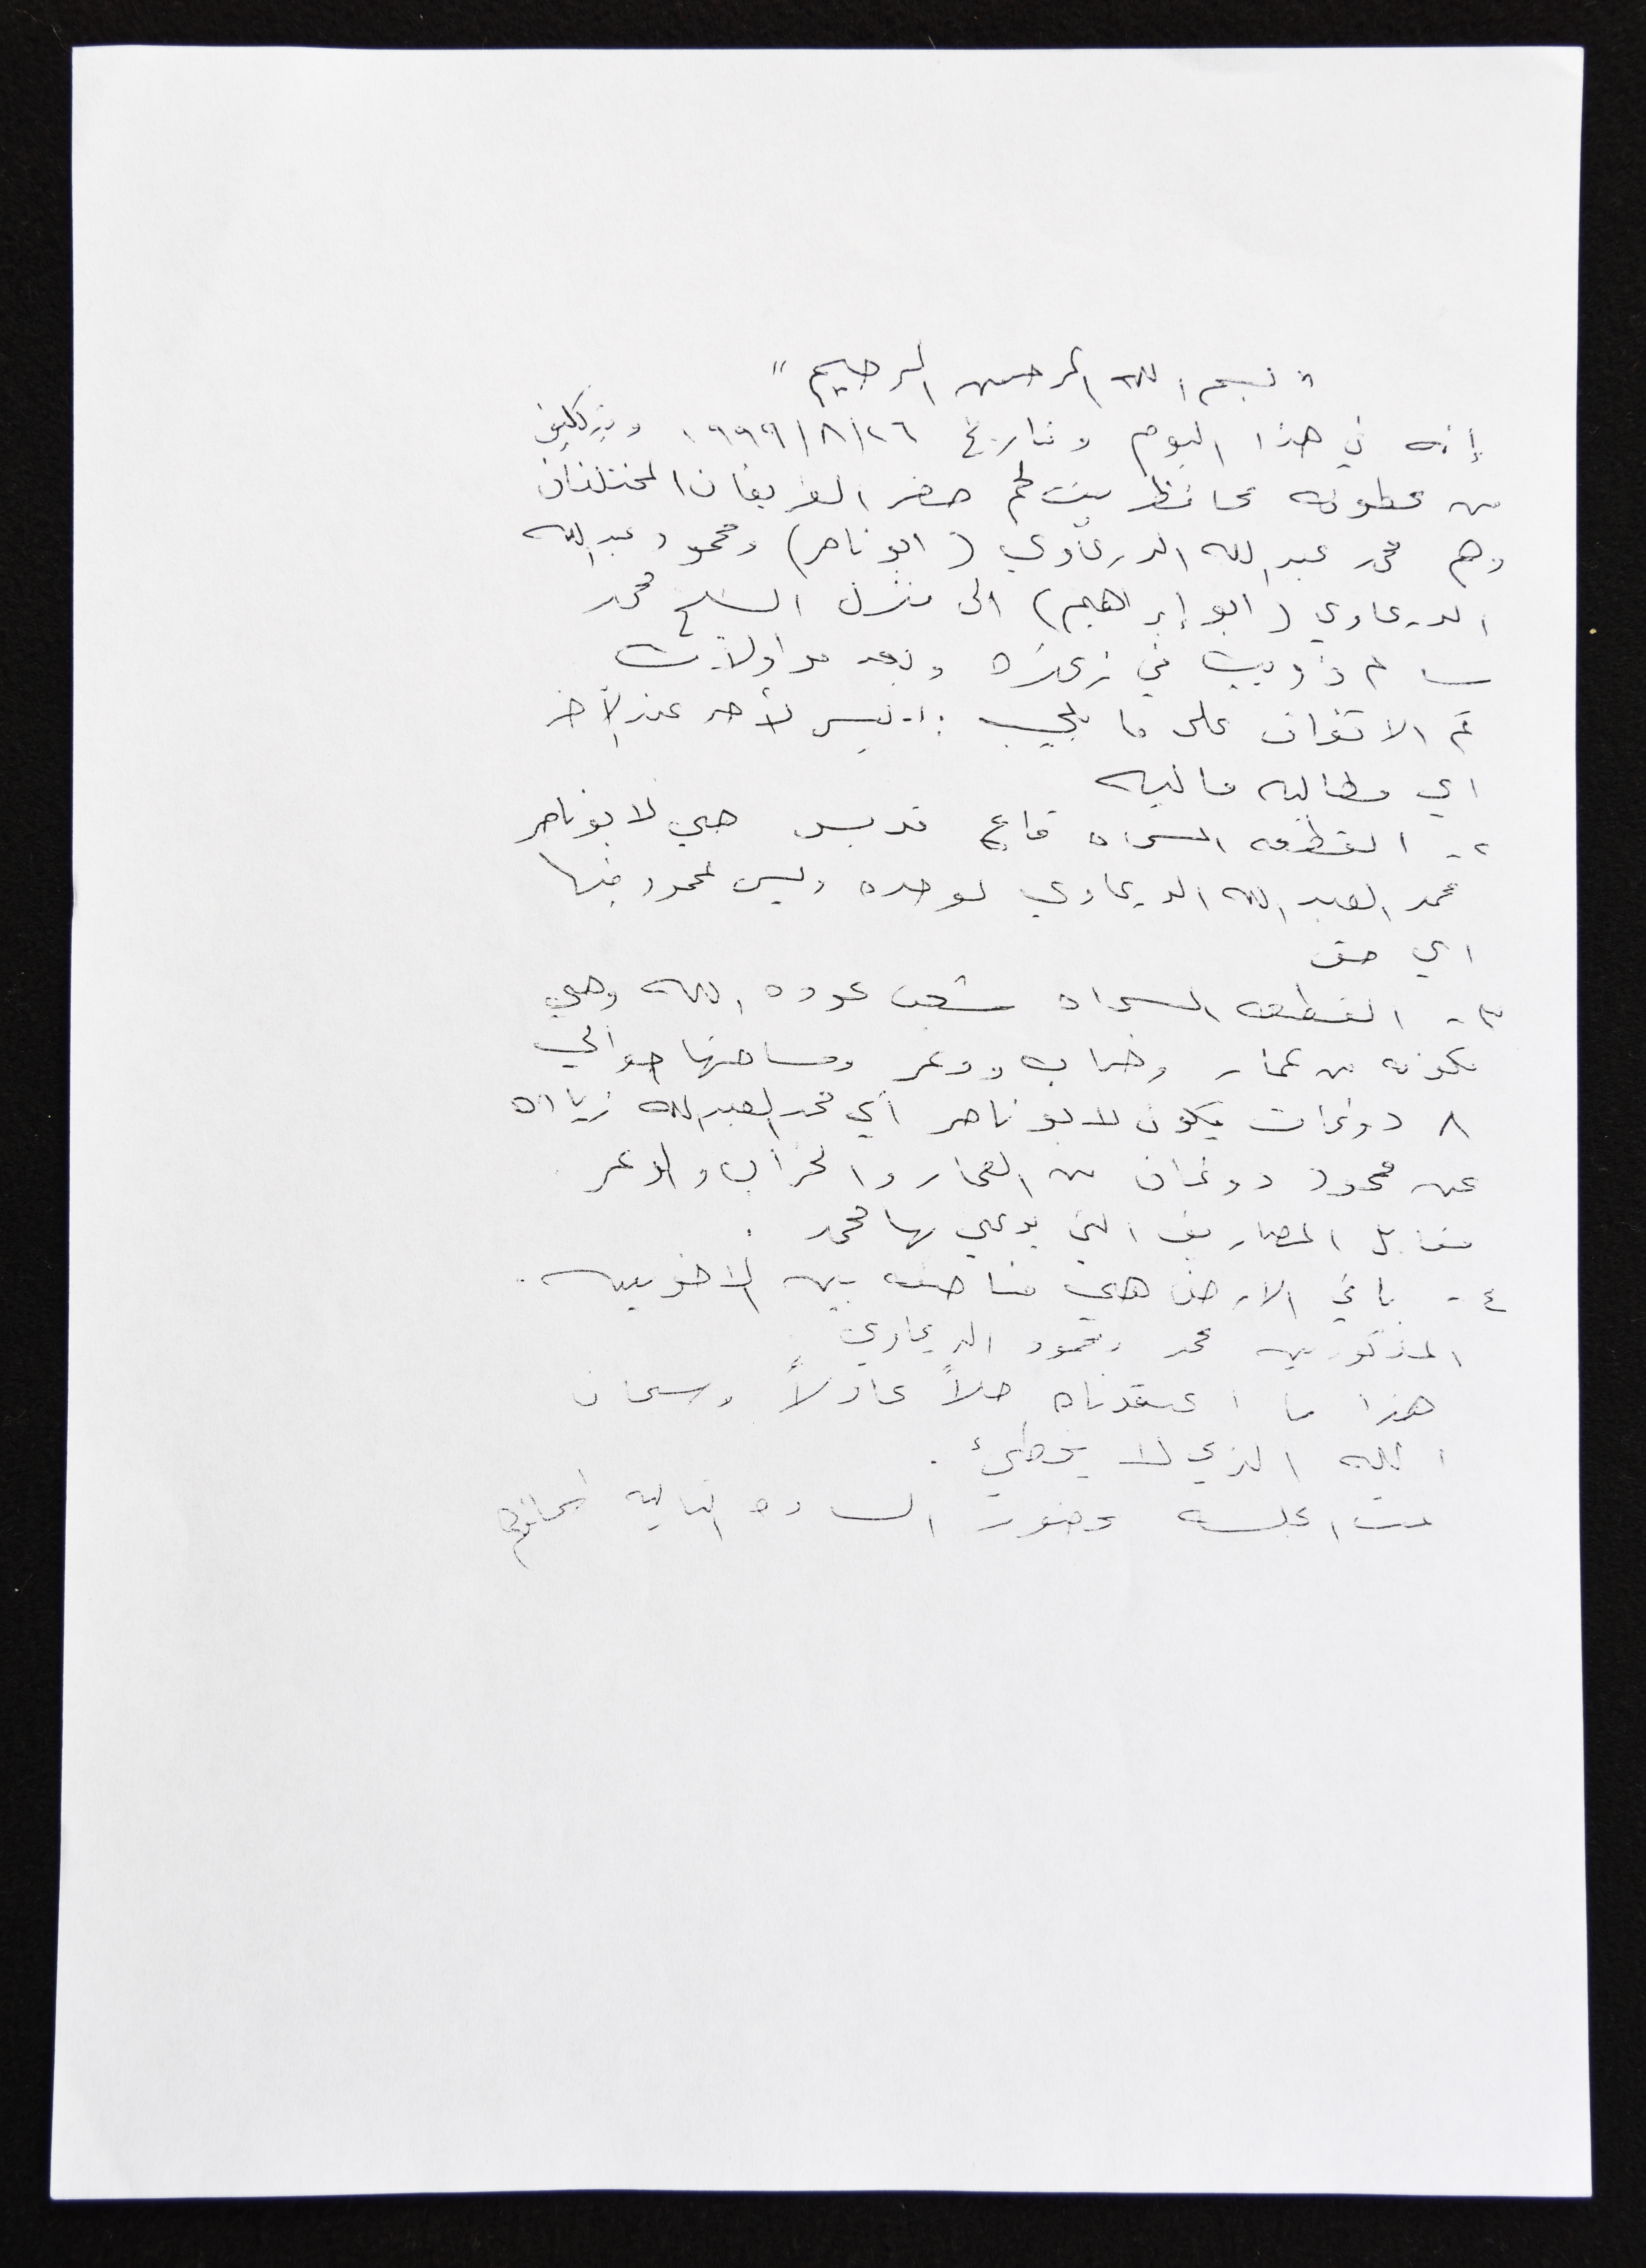 " بسم الله الرحمن الرحيم "
إنه في هذا اليوم وبتاريخ ١٩٩٩/٨/٢٦ وبتكليف
من عطوفه محافظ بيت لحم حضر الفريقان المختلفان
وهم محمد عبد الله الدرعاوي ( ابو ناصر) ومحمود عبد الله
الدرعاوي ( ابو إبراهيم) الى منزل الشيخ محمد
سالم ذويب في زعتره وبعد مداولات
تم الاتفاق على ما يلي :١- ليس لأحد عند الأخر
اي مطالبه ماليه
٢- القطعه المسماه قاع قديس هي لابو ناصر
محمد العبد الله الدرعاوي لوحده وليس لمحمود فيها
اي حق
٣- القطعه المسماه شعب عوده الله وهي
مكونه من عمار وخراب ووعر ومساحتها حوالي
٨ دونمات يكون لابو ناصر أي محمد العبد الله زياده
عن محمود دونمان من العمار والخراب والوعر
مقابل المصاريف التي يدعي بها محمد .
٤- باقي الارض هي مناصفه بين الاخويين.
المذكورين محمد ومحمود الدرعاوي
هذا ما اعتقدناه حلاً عادلاً وسبحان
الله الذي لا يخطئ .
تمت الجلسه بحضور الساده التاليه